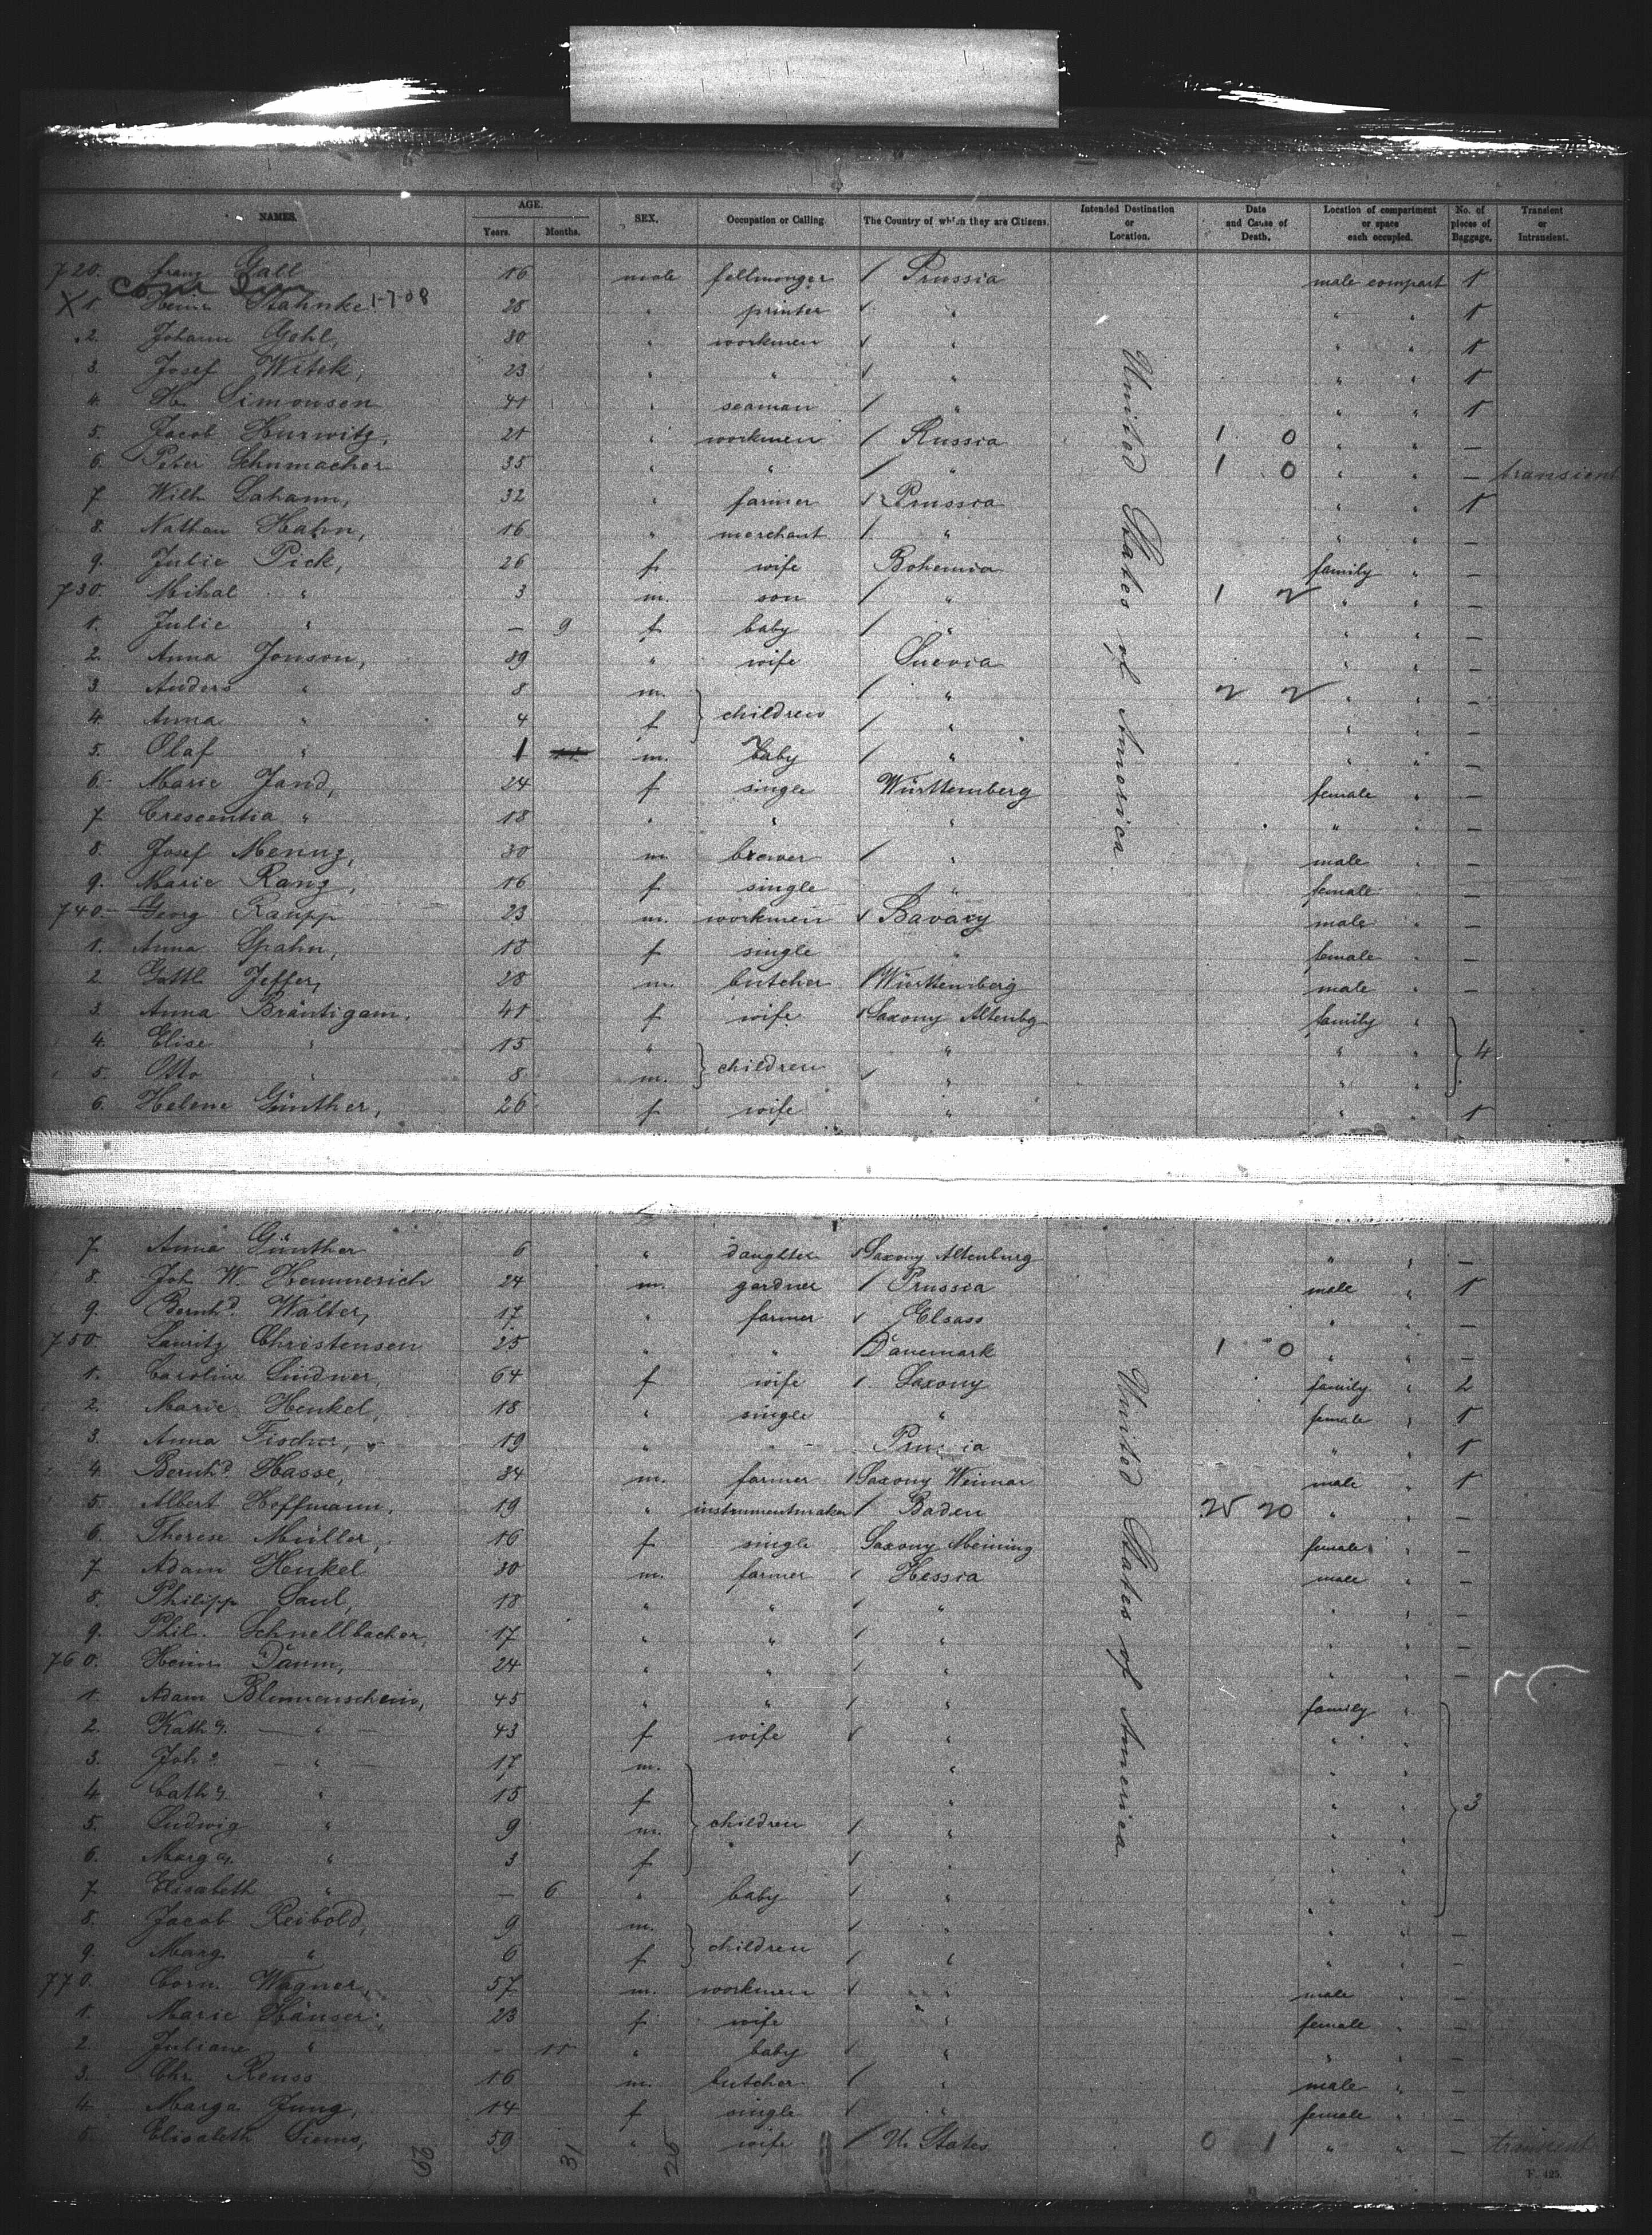 NAMES. AGE. Years. Months. SEX. Occupation or Calling The Country of which they are Citizens. Intended Destination or Location. Date and Cause of Death. Location of compartment or space each occupied. No. of pieces of Baggage. Transient or Intransient.
720. Franz Gall 16 male fellmonger / Prussia male compart 1
X 1. Heinr. Stahnke 1-7-08 28 " printer / " " " 1
2. Johann Gohl, 30 " workmen / " " " 1
3. Josef Witek, 23 " " / " " " 1
4. H. Simonsen 41 " seaman / " " " 1
5. Jacob Hurwitz, 21 " workmen / Russia 1 0 " " —
6. Peter Schumacher 35 " " / " 1 0 " " — transient
7. Wilh. Lahann, 32 " farmer / Prussia " " 1
8. Nathan Hahn, 16 " merchant / " " " —
9. Julie Pick, 26 f wife Bohemia family " —
730. Mihal " 3 m. son / " 1 2 " " —
1. Julie " — 9 f baby / " " " —
2. Anna Jonson, 39 " wife Suevia " " —
3. Anders " 8 m. children / " 2 2 " " —
4. Anna " 4 f / " " " —
5. Olaf " 1 m. baby / " " " —
6. Marie Jand, 24 f single Württemberg female " —
7. Crescentia " 18 " " " " " —
8. Josef Mennz, 30 m. brewer / " male " —
9. Marie Rang, 16 f single " female " —
740. Georg Raupp 23 m. workmen / Bavary male " —
1. Anna Spahn, 18 f single " female " —
2. Gottl. Jeffer, 28 m. butcher / Württemberg male " —
3. Anna Bräutigam, 41 f wife / Saxony Altenbg family "
4. Elise " 15 " children " " " 4
5. Otto " 8 m. / " " "
6. Helene Günther, 26 f wife " " " 1
7. Anna Günther 6 " daughter / Saxony Altenburg " " —
8. Joh. W. Hemmerich 24 m. gardner / Prussia male " 1
9. Bernhd. Walter, 17 " farmer / Elsass " " —
750. Lauritz Christensen 25 " " / Dänemark 1 0 " " —
1. Caroline Lindner, 64 f wife / Saxony family " 2
2. Marie Henkel, 18 " single " female " 1
3. Anna Fischer, 19 " " Prussia " " 1
4. Bernhd. Hasse, 34 m. farmer / Saxony Weimar male " 1
5. Albert Hoffmann, 19 " instrumentmaker / Baden 25 20 " " —
6. Therese Müller, 16 f single Saxony Meining female " —
7. Adam Henkel 30 m. farmer / Hessia male " —
8. Philipp Saul, 18 " " / " " " —
9. Phil. Schnellbacher, 17 " " / " " " —
760. Heinr. Daum, 24 " " / " " " —
1. Adam Blumenschein, 45 " " / " family "
2. Kath a. — " — 43 f wife / " " "
3. Joh s. — " — 17 m. " " "
4. Cath a. " 15 f " " " 3
5. Ludwig " 9 m. children / " " "
6. Marga. " 3 f / " " "
7. Elisabeth " — 6 " baby / " " "
8. Jacob Reibold, 9 m. children / " " " —
9. Marg. " 6 f / " " " —
770. Corn. Wagner, 57 m. workmen / " male " —
1. Marie Häuser, 23 f wife " female " —
2. Juliane " — 11 " baby / " " " —
3. Chr. Reuss 16 m. butcher / " male " —
4. Marga Jung, 14 f single / " female " —
5. Elisabeth Siems, 59 " wife / U. States 0 1 " " — transient
United States of America
United States of America
62 31 26
F. 425.